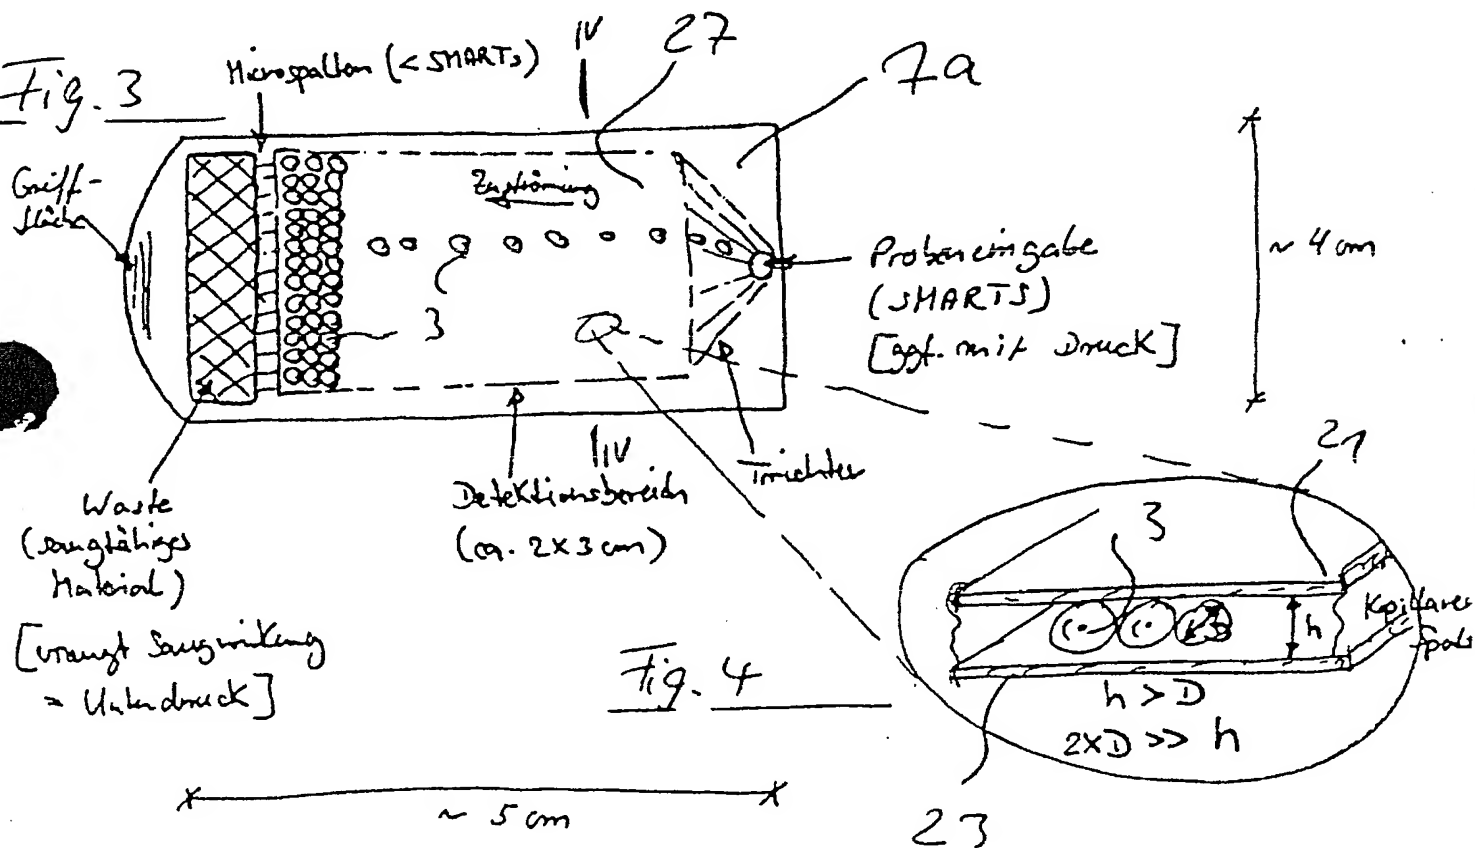 Fig. 3
Microspalten (< SMARTs)
IV
27
7a
Griff-
fläche
Zuströmung
3
Probeneingabe
(SMARTS)
[ggf. mit Druck]
~ 4 cm
Waste
(saugfähiges
Material)
[erzeugt Saugwirkung
= Unterdruck]
Detektionsbereich
(ca. 2x3 cm)
IV
Trichter
21
3
D
h
Kapillarer
Spalt
h > D
2xD >> h
Fig. 4
23
~ 5 cm